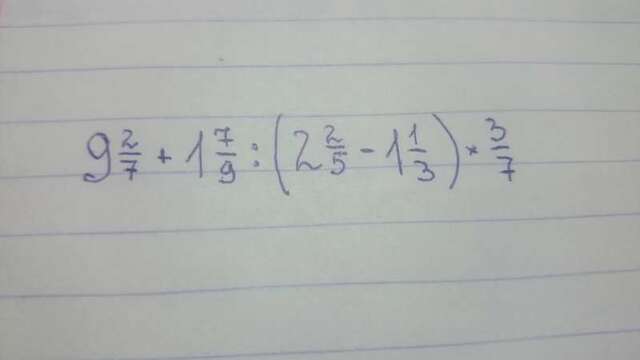 9 2/7 + 1 7/9 : (2 2/5 - 1 1/3) * 3/7